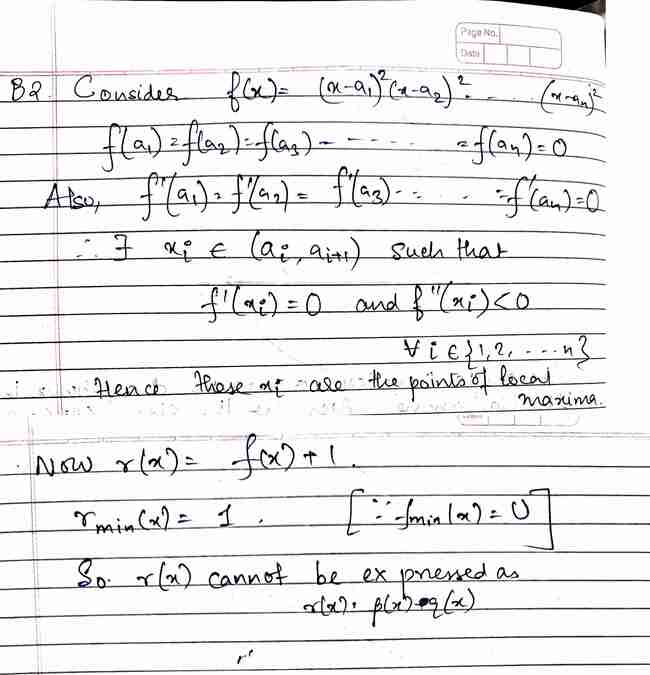 Page No.
Date
B2 Consider f(x)= (x-a₁)²(x-a₂)² - . . . . (x-aₙ)²
f(a₁) = f(a₂) = f(a₃) - - - - - - = f(aₙ) = 0
Also, f'(a₁) = f'(a₂) = f'(a₃) - - . . . = f'(aₙ)=0
∴ ∃ xᵢ ∈ (aᵢ, aᵢ₊₁) such that
f'(xᵢ) = 0 and f''(xᵢ) < 0
∀ i ∈ {1,2, ....n}
Hence these xᵢ are the points of local
maxima.
Now r(x) = f(x) + 1.
rₘᵢₙ(x) = 1. [∵ fₘᵢₙ(x) = 0]
So r(x) cannot be expressed as
r(x) = p(x) q(x)
r'